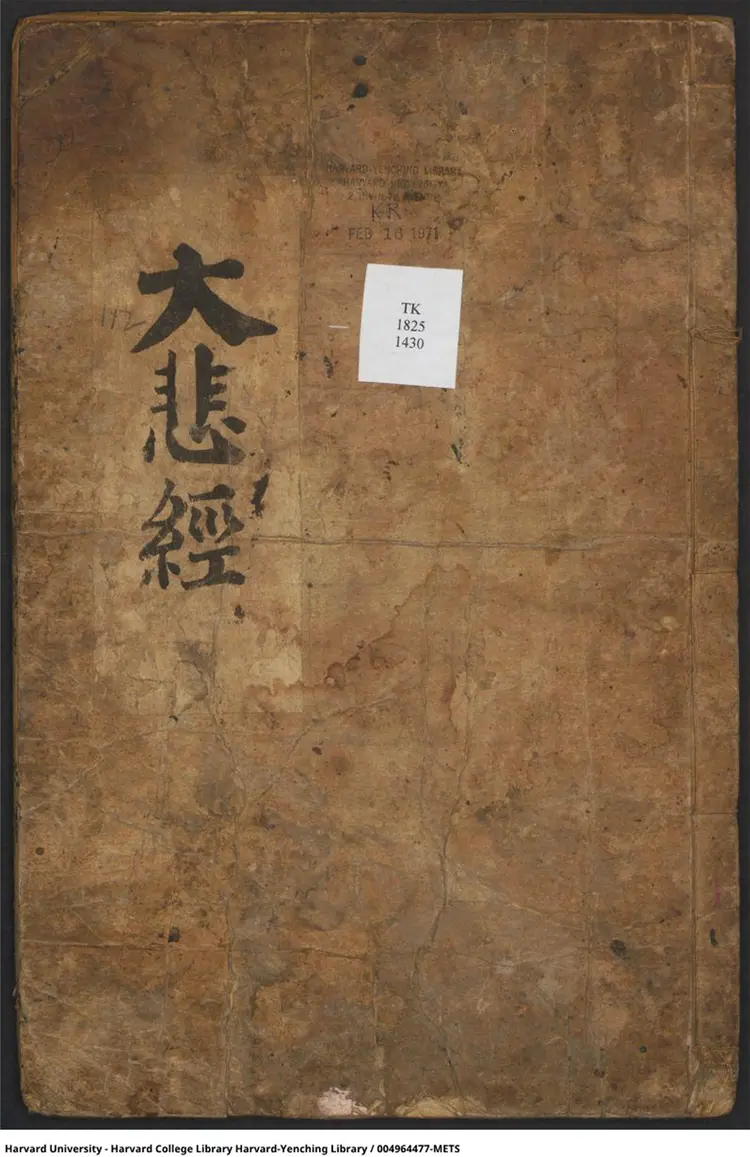 大悲經
HARVARD-YENCHING LIBRARY
HARVARD UNIVERSITY
2 DIVINITY AVENUE
KR
FEB 16 1971
TK
1825
1430
142
Harvard University - Harvard College Library Harvard-Yenching Library / 004964477-METS